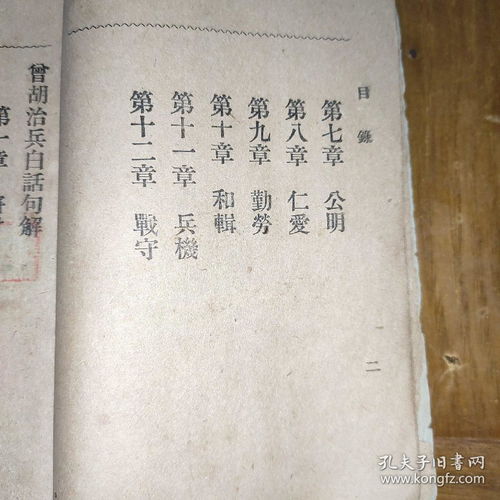 目錄
第七章 公明
第八章 仁愛
第九章 勤勞
第十章 和輯
第十一章 兵機
第十二章 戰守
二
曾胡治兵白話句解
第一章
孔夫子旧书网
www.kongfz.com